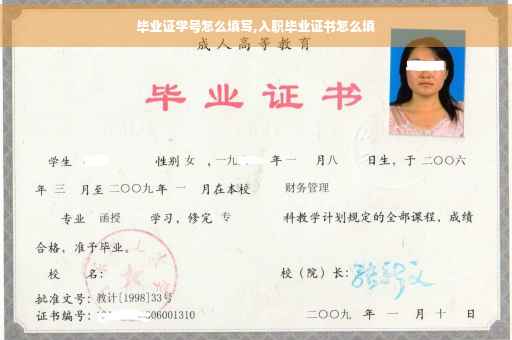 毕业证学号怎么填写,入职毕业证书怎么填
成人高等教育
毕业证书
学生 性别 女 ,一九 年 一 月 八 日生，于 二〇〇六
年 三 月至 二〇〇九 年 一 月在本校 财务管理
专业 函授 学习，修完 专 科教学计划规定的全部课程，成绩
合格，准予毕业。
校 名： 校（院）长：
批准文号：教计[1998]33号
证书编号： 06001310 二〇〇九 年 一 月 十 日